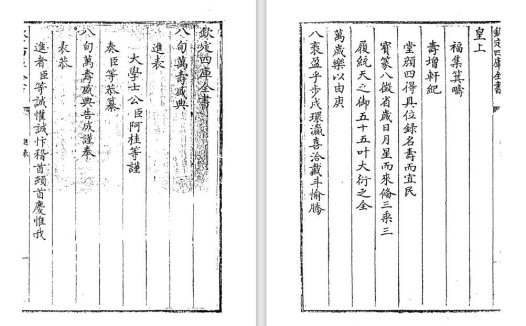 欽定四庫全書
八旬萬壽盛典
進表
大學士公臣阿桂等謹
奏臣等恭纂
八旬萬壽盛典告成謹奉
表恭
進者臣等誠懽誠忭稽首頓首慶惟我
進表
欽定四庫全書
皇上
福集箕疇
壽增軒紀
堂顏四得具位錄名壽而宜民
寶篆八徵省歲日月星而來備三乘三
履統天之御五十五叶大衍之全
萬歲樂以由庚
八袠盈乎步戌環瀛喜洽戴斗愉騰